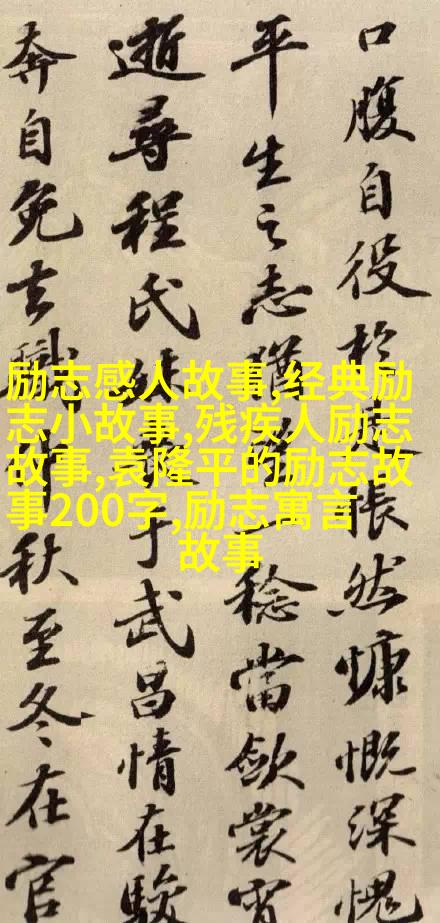 口腹自役於是悵然慷慨深愧
平生之志猶望一稔當斂裳宵
逝尋程氏妹喪于武昌情在駿
奔自免去職仲秋至冬在官
励志感人故事,经典励
志小故事,残疾人励志
故事,袁隆平的励志故
事200字,励志寓言
故事